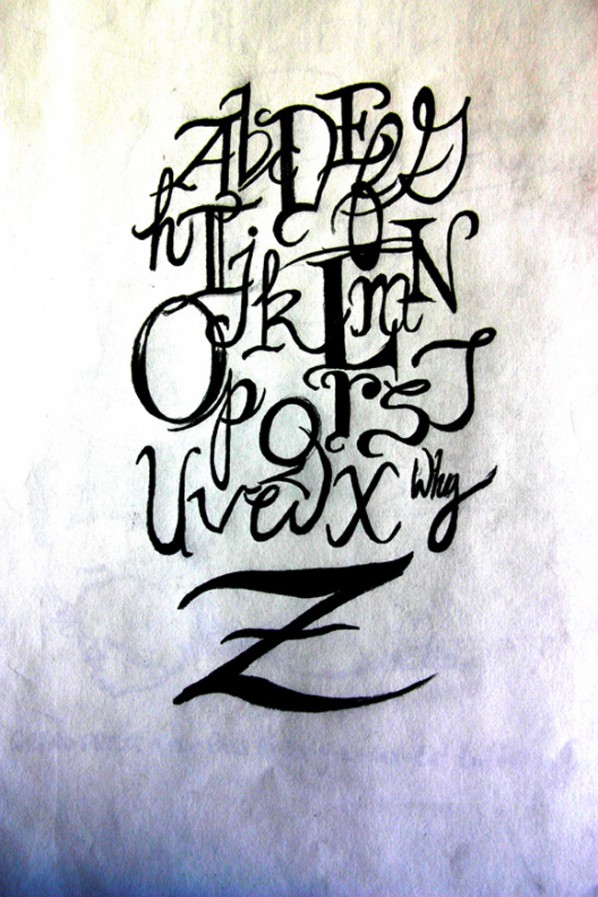 AbcDEfG
hIjkLmN
OpQrsT
UvewX Why
Z